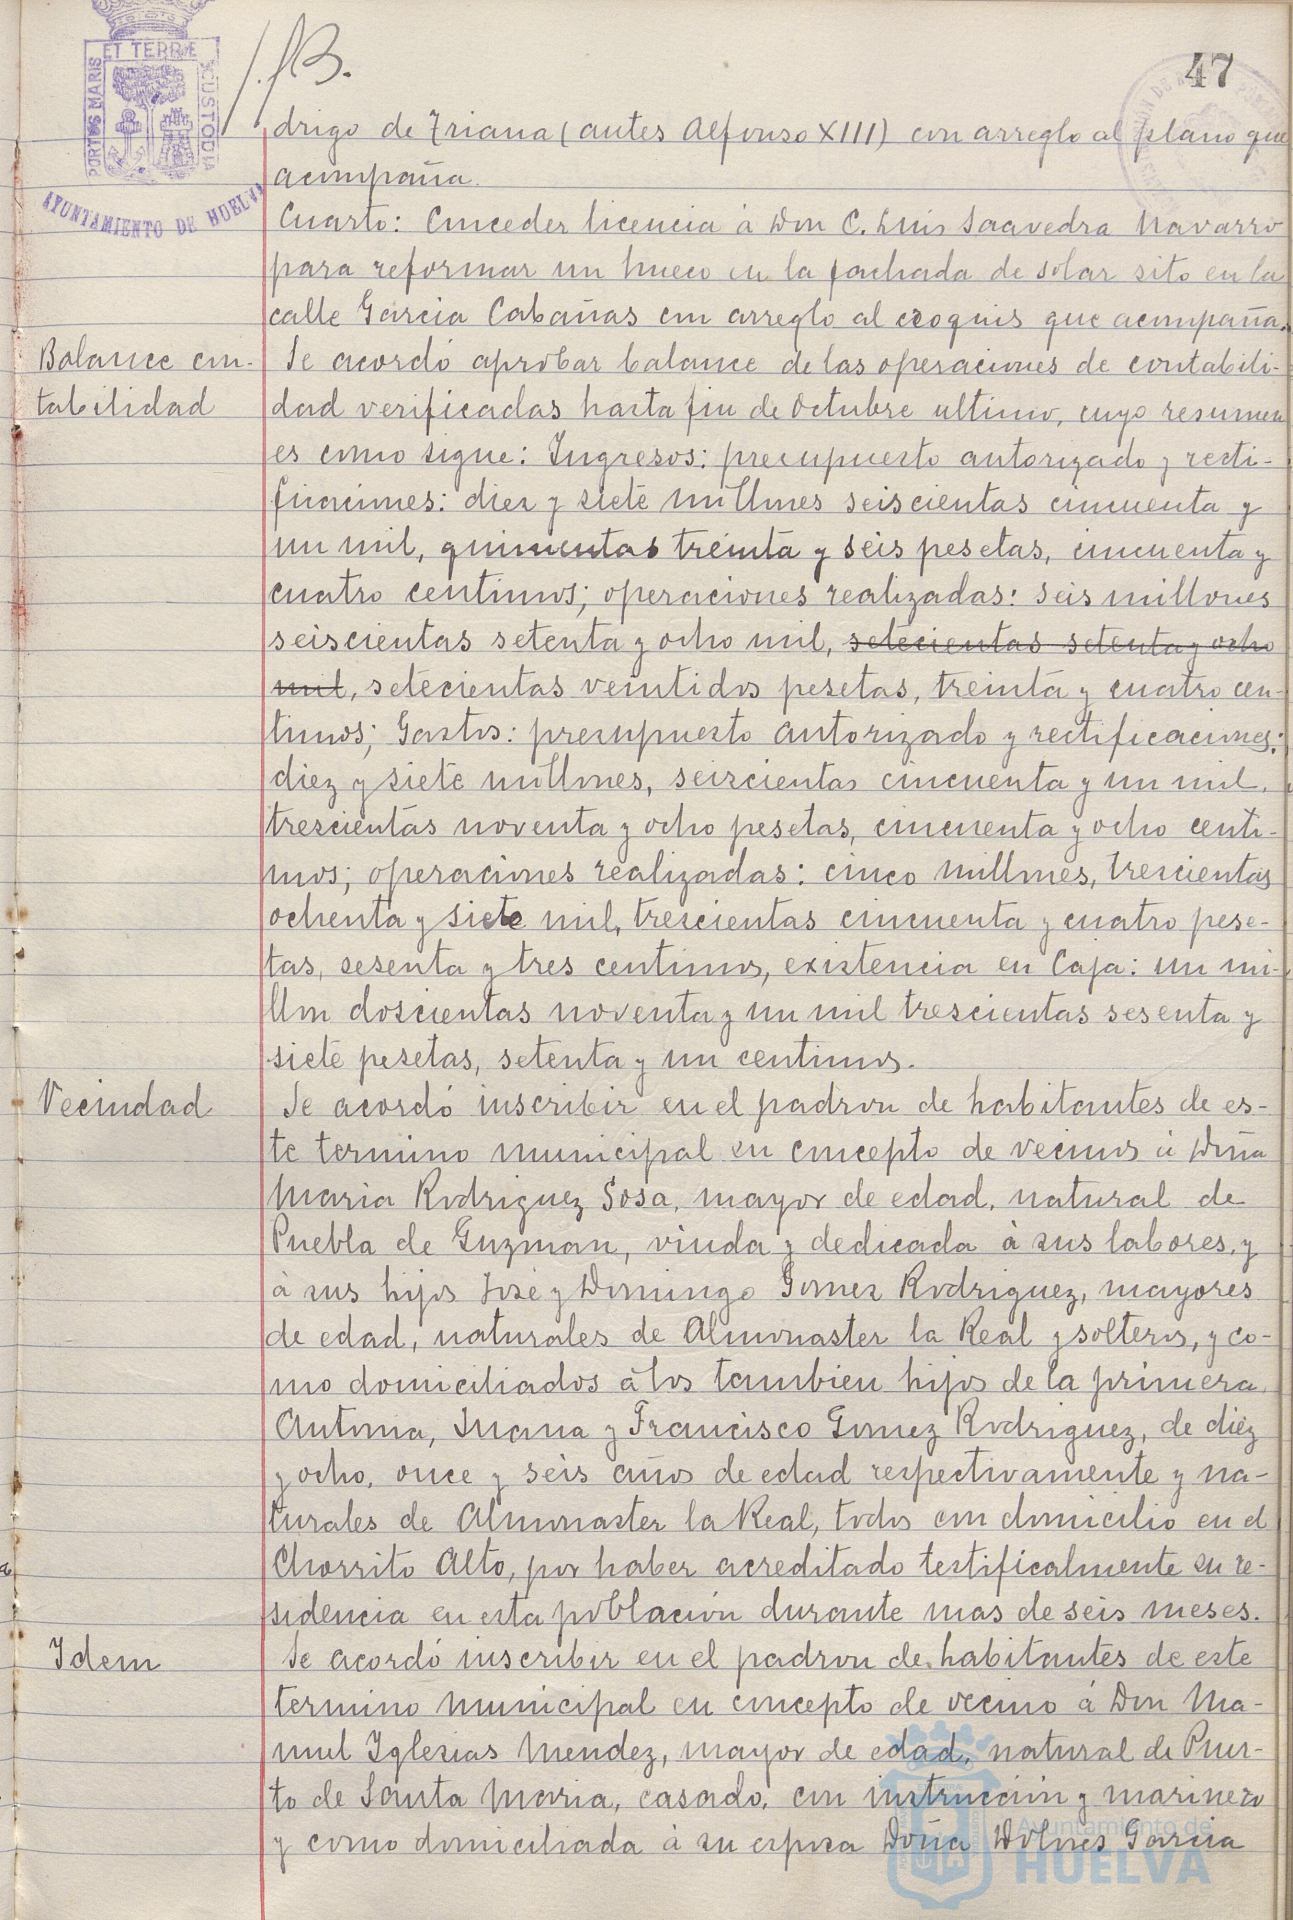 47
PORTUS MARIS ET TERRE CUSTODIA
AYUNTAMIENTO DE HUELVA
drigo de Triana (antes Alfonso XIII) con arreglo al plano que
acompaña.
Cuarto: Conceder licencia á Don C. Luis Saavedra Navarro
para reformar un hueco en la fachada de solar sito en la
calle Garcia Cabañas con arreglo al croquis que acompaña.
Balance con-
tabilidad
Se acordó aprobar balance de las operaciones de contabili-
dad verificadas hasta fin de Octubre ultimo, cuyo resumen
es como sigue: Ingresos: precupuesto autorizado y recti-
ficaciones: diez y siete millones seiscientas cincuenta y
un mil, quinientas treinta y seis pesetas, cincuenta y
cuatro centimos; operaciones realizadas: seis millones
seiscientas setenta y ocho mil, setecientas setenta y ocho
mil, setecientas veintidos pesetas, treinta y cuatro cen-
timos; Gastos: presupuesto autorizado y rectificaciones:
diez y siete millones, seiscientas cincuenta y un mil,
trescientas noventa y ocho pesetas, cincuenta y ocho centi-
mos; operaciones realizadas: cinco millones, trescientas
ochenta y siete mil, trescientas cincuenta y cuatro pese-
tas, sesenta y tres centimos, existencia en Caja: un mi-
llon doscientas noventa y un mil trescientas sesenta y
siete pesetas, setenta y un centimos.
Vecindad
Se acordó inscribir en el padron de habitantes de es-
te termino municipal en concepto de vecinos á Doña
Maria Rodriguez Sosa, mayor de edad, natural de
Puebla de Guzman, viuda y dedicada à sus labores, y
à sus hijos José y Domingo Gomez Rodriguez, mayores
de edad, naturales de Almonaster la Real y solteros, y co-
mo domiciliados à los tambien hijos de la primera,
Antonia, Juana y Francisco Gomez Rodriguez, de diez
y ocho, once y seis años de edad respectivamente y na-
turales de Almonaster la Real, todos con domicilio en el
Chorrito Alto, por haber acreditado testificalmente su re-
sidencia en esta población durante mas de seis meses.
Idem
Se acordó inscribir en el padron de habitantes de este
termino municipal en concepto de vecino á Don Ma-
nuel Iglesias Mendez, mayor de edad, natural de Puer-
to de Santa Maria, casado, con instrucción y marinero
y como domiciliada à su esposa Doña Dolores Garcia
Ayuntamiento de
HUELVA